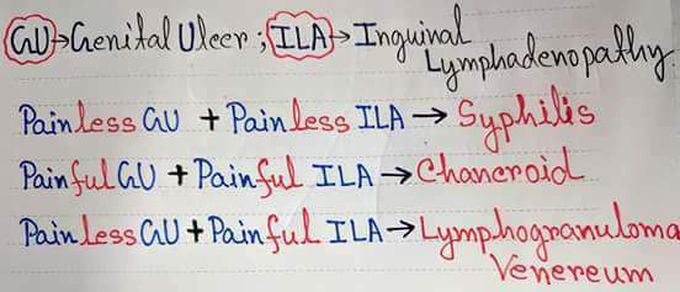 GU→Genital Ulcer; ILA→Inguinal
Lymphadenopathy.
Painless GU + Painless ILA → Syphilis
Painful GU + Painful ILA → Chancroid
Painless GU + Painful ILA → Lymphogranuloma
Venereum